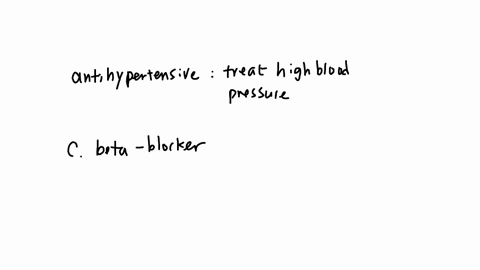 antihypertensive : treat high blood
pressure
C. beta-blocker